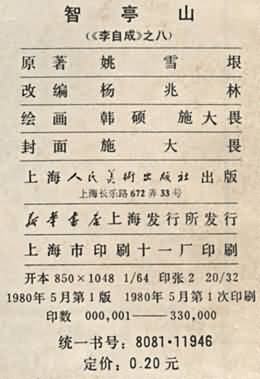 智亭山
(《李自成》之八)
原著 姚雪垠
改编 杨兆林
绘画 韩硕 施大畏
封面 施大畏
上海人民美术出版社出版
上海长乐路672弄33号
新华书店上海发行所发行
上海市印刷十一厂印刷
开本 850×1048 1/64 印张2 20/32
1980年5月第1版 1980年5月第1次印刷
印数 000,001——330,000
统一书号：8081·11946
定价：0.20元